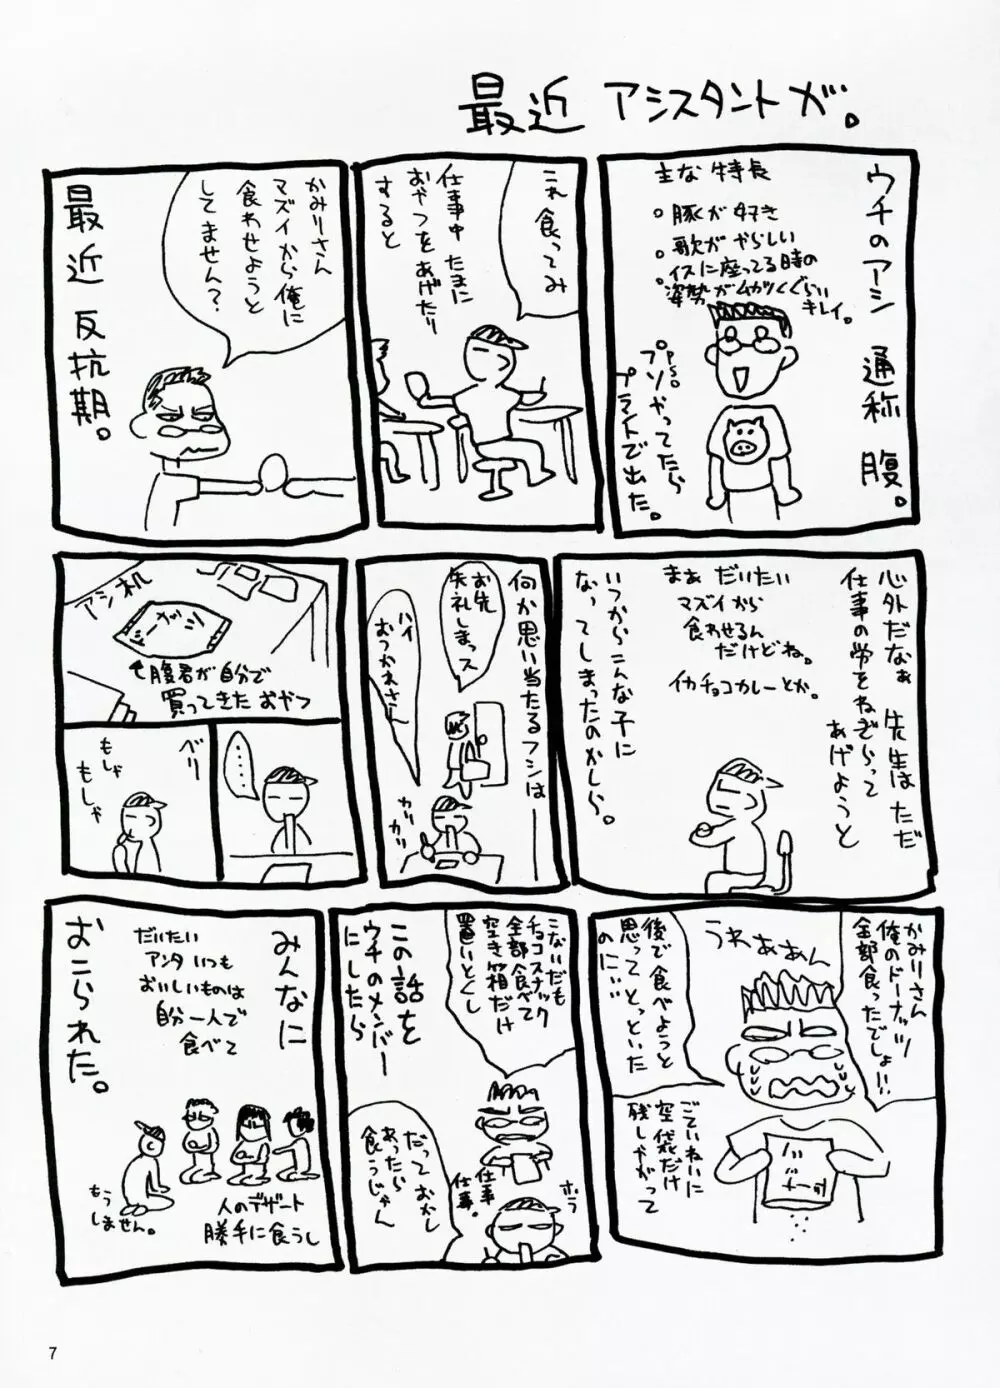 最近 アシスタントが。
ウチのアシ 通称 腹。
主な特長
豚が好き
歌がやらしい
イスに座ってる時の
姿勢がムカツクぐらい
キレイ。
プソやってたら
プラントで出た。
これ食ってみ
仕事中 たまに
おやつをあげたり
すると
かみりさん
マズイから俺に
食わせようと
してません?
最近 反抗期。
心外だなぁ 先生はただ
仕事の労をねぎらって
あげようと
まぁ だいたい
マズイから
食わせるん
だけどね。
イカチョコカレーとか。
いつからこんな子に
なってしまったのかしら。
何か思い当たるフシは
お先
失礼しまっス
ハイ
おつかれさん
カリ
カリ
アシ机
シュガー
腹君が自分で
買ってきた おやつ
ベリ
……
もしゃ
もしゃ
かみりさん
俺のドーナッツ
全部食ったでしょ!!
うわぁあん
後で食べようと
思って とっといた
のに…
ごていねいに
空袋だけ
残しやがって
こないだも
チョコスナック
全部食べて
空き箱だけ
置いとくし
この話を
ウチのメンバー
にしたら
だって おかし
あったら
食うじゃん
仕事
仕事。
ホラ
みんなに
だいたい
アンタ いつも
おいしいものは
自分一人で
食べて
おこられた。
人のデザート
勝手に食うし
もう
しません。
7